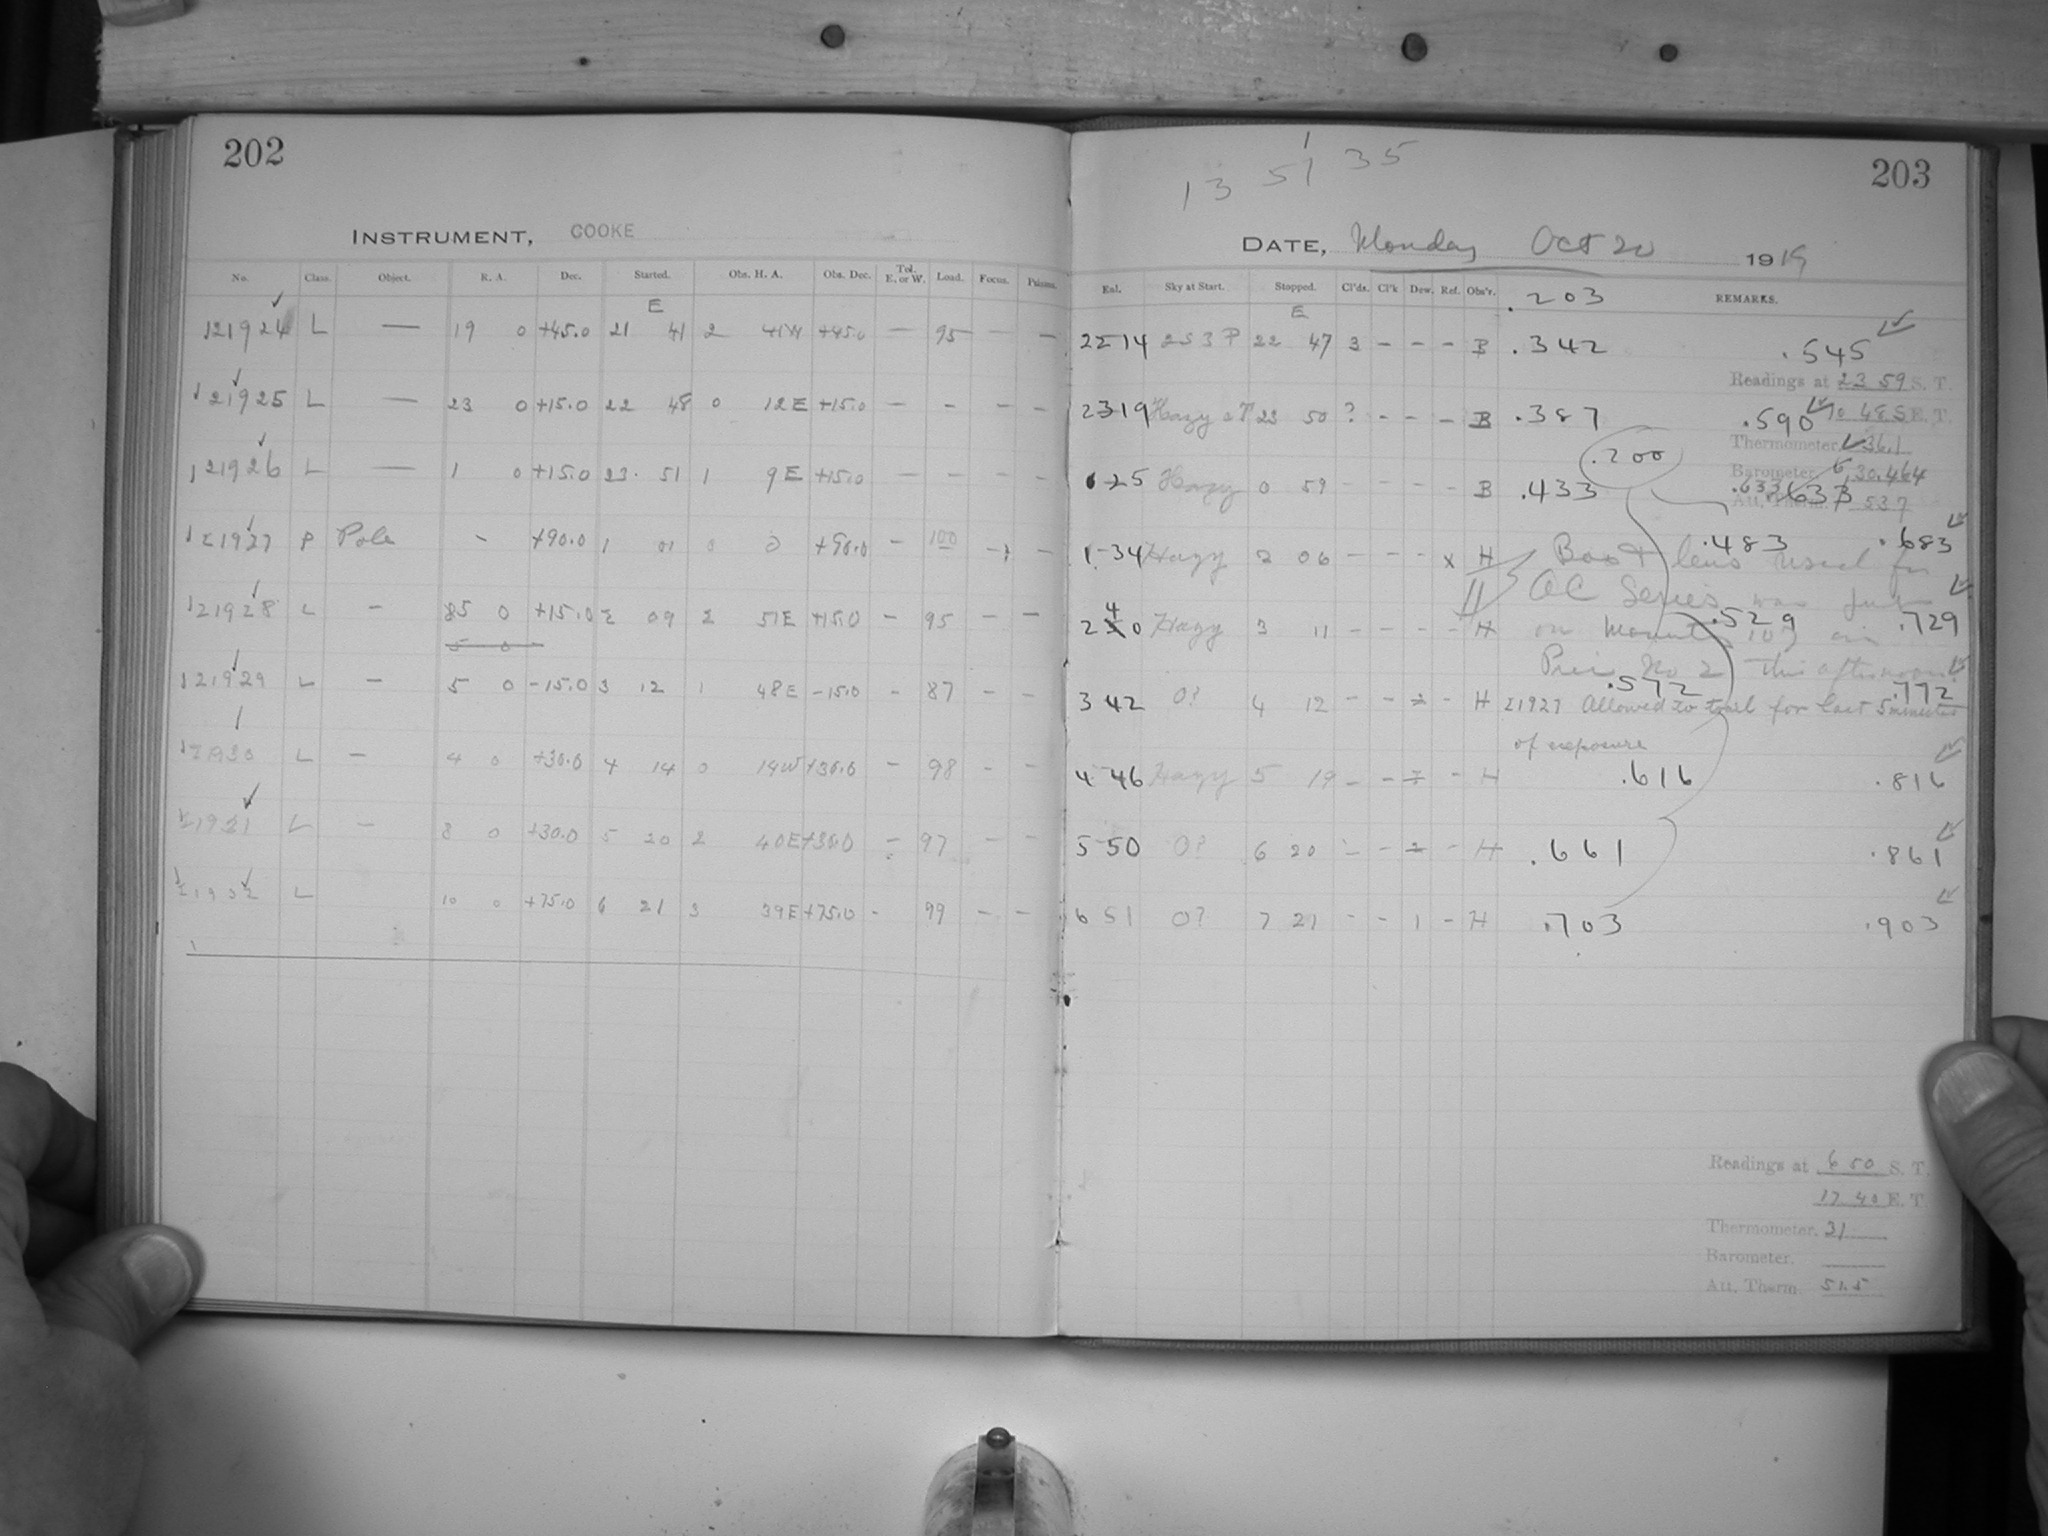 202
INSTRUMENT, COOKE
No. Class. Object. R. A. Dec. Started. Obs. H. A. Obs. Dec. Tel. E. or W. Load. Focus.
E
121924 L — 19 0 +45.0 21 41 2 41W +45.0 — 95 — —
121925 L — 23 0 +15.0 22 48 0 12E +15.0 — - — -
121926 L — 1 0 +15.0 23 51 1 9E +15.0 — — — -
121927 P Pole - +90.0 1 01 0 0 +90.0 — 100 - —
121928 L - 85 0 +15.0 2 09 2 51E +15.0 - 95 - —
5 0
121929 L - 5 0 -15.0 3 12 1 48E -15.0 - 87 - -
121930 L — 4 0 +30.0 4 14 0 14W +30.0 - 98 - -
121931 L - 8 0 +30.0 5 20 2 40E +30.0 - 97 - -
121932 L 10 0 +75.0 6 21 3 39E +75.0 - 99 - -
203
13 51 35
DATE, Monday Oct 20 1919
Eal. Sky at Start. Stopped. Cl'ds. Cl'k Dew. Ref. Obs'r. .203 REMARKS.
E
22-14 2S3P 22 47 3 - - - B .342 .545
Readings at 23 59 S. T.
23 19 Hazy 23 50 ? - - - B .387 .590 10 48.5 E. T.
Thermometer. 36.1
.200
Barometer. 30.464
0-25 Hazy 0 59 - - - - B .433 .633 .633
Att. Therm. 53.7
1-34 Hazy 2 06 - - - x H .483 .683
Box & lens used for
AC Series was put
2 40 Hazy 3 11 - - - - H .529 .729
on Mount in
Pier No 2 this afternoon.
.572 .772
3 42 0? 4 12 - - 2 - H 21927 Allowed to trail for last 5 minutes
of exposure
4-46 Hazy 5 19 - - - H .616 .816
5-50 0? 6 20 - - 2 - H .661 .861
6 51 0? 7 21 - - 1 - H .703 .903
Readings at 6 50 S. T.
17 40 E. T
Thermometer. 31
Barometer.
Att. Therm. 51.5